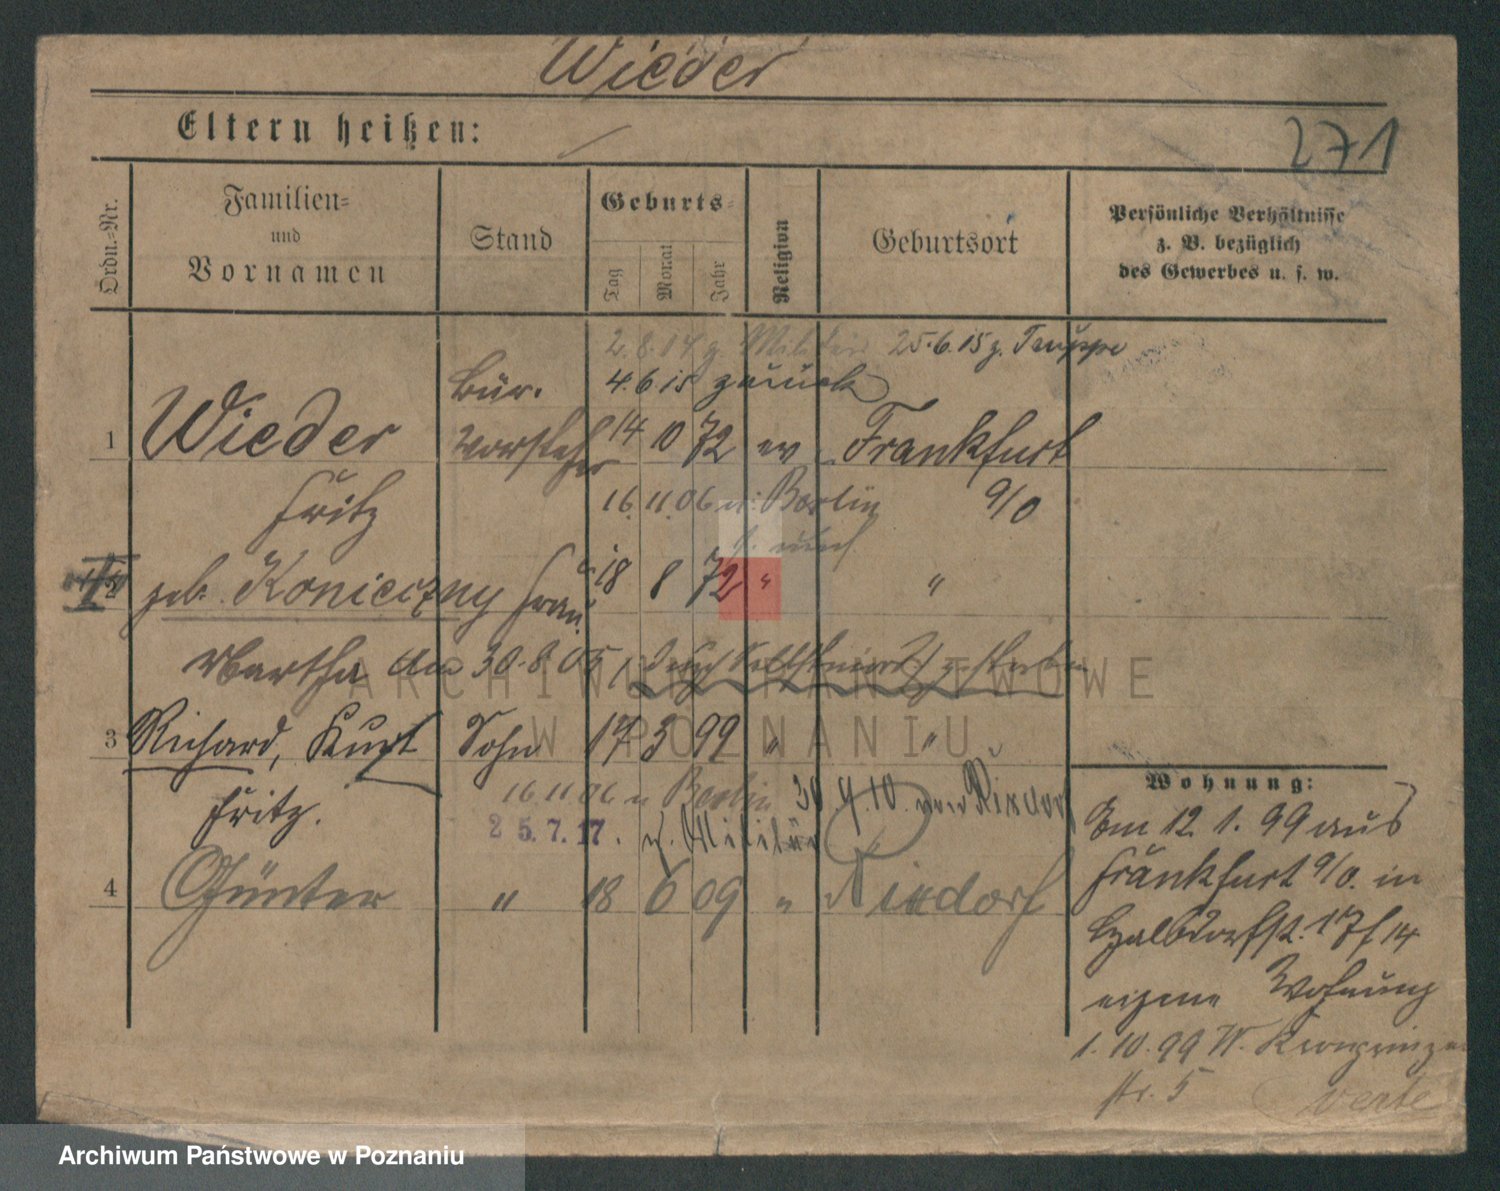 Wieder
Eltern heißen:
271
Ordn.-Nr.
Familien- und Vornamen
Stand
Geburts-
Tag
Monat
Jahr
Religion
Geburtsort
Persönliche Verhältnisse
z. B. bezüglich
des Gewerbes u. s. w.
2.8.14 z. Militär 25.6.15 z. Truppe
4.6.15 zurück
Bür.
1 Wieder vorsteher 14 10 72 ev Frankfurt
Fritz 16.11.06 n. Berlin a/O
2 geb. Konieczny Frau 18 8 72 " "
Martha am 30.8.05 durch Selbstmord gestorben
3 Richard, Kurt Sohn 17 3 99 " "
Fritz.
16 11 06 n Berlin 30.9.10. von Rixdorf
25.7.17. z. Militär
4 Günter " 18 6 09 " Rixdorf
Wohnung:
Am 12.1.99 aus
Frankfurt a/O. in
17 14
eigene Wohnung
1.10.99 W. Kronprinzen
str. 5
verte
ARCHIWUM PAŃSTWOWE
W POZNANIU
Archiwum Państwowe w Poznaniu